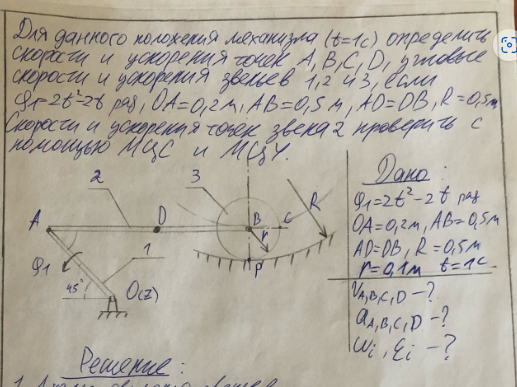 Для данного положения механизма (t=1с) определить
скорости и ускорения точек A, B, C, D, угловые
скорости и ускорения звеньев 1,2 и 3, если
φ1=2t²-2t рад, OA=0,2м, AB=0,5м, AD=DB, R=0,5м
Скорости и ускорения точек звена 2 проверить с
помощью МЦС и МЦУ.
Дано:
φ1=2t²-2t рад
OA=0,2м, AB=0,5м
AD=DB, R=0,5м
r=0,1м t=1с
VA,B,C,D-?
aA,B,C,D-?
ωi, εi-?
2
3
R
A
D
B
C
r
1
φ1
P
45°
O(Z)
Решение: